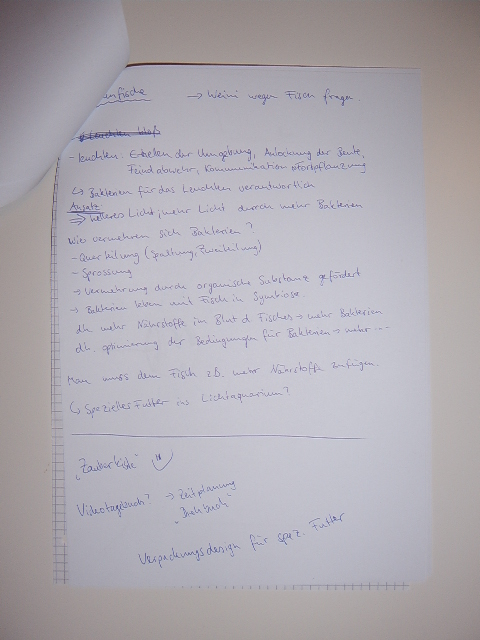 → Weini wegen Fisch fragen.
- leuchten: Erhellen der Umgebung, Anlockung der Beute,
Feindabwehr, Kommunikation + Fortpflanzung
↳ Bakterien für das Leuchten verantwortlich
Ansatz:
⇒ helleres Licht, mehr Licht durch mehr Bakterien
Wie vermehren sich Bakterien?
- Querteilung (Spaltung, Zweiteilung)
- Sprossung
→ Vermehrung durch organische Substanz gefördert
→ Bakterien leben mit Fisch in Symbiose.
dh. mehr Nährstoffe im Blut d. Fisches → mehr Bakterien
dh. optimierung der Bedingungen für Bakterien → mehr ...
Man muss dem Fisch zB. mehr Nährstoffe zufügen.
↳ Spezielles Futter ins Lichtaquarium?
"Zauberkiste"
Videotagebuch? → Zeitplanung
"Drehbuch"
Verpackungsdesign für spez. Futter